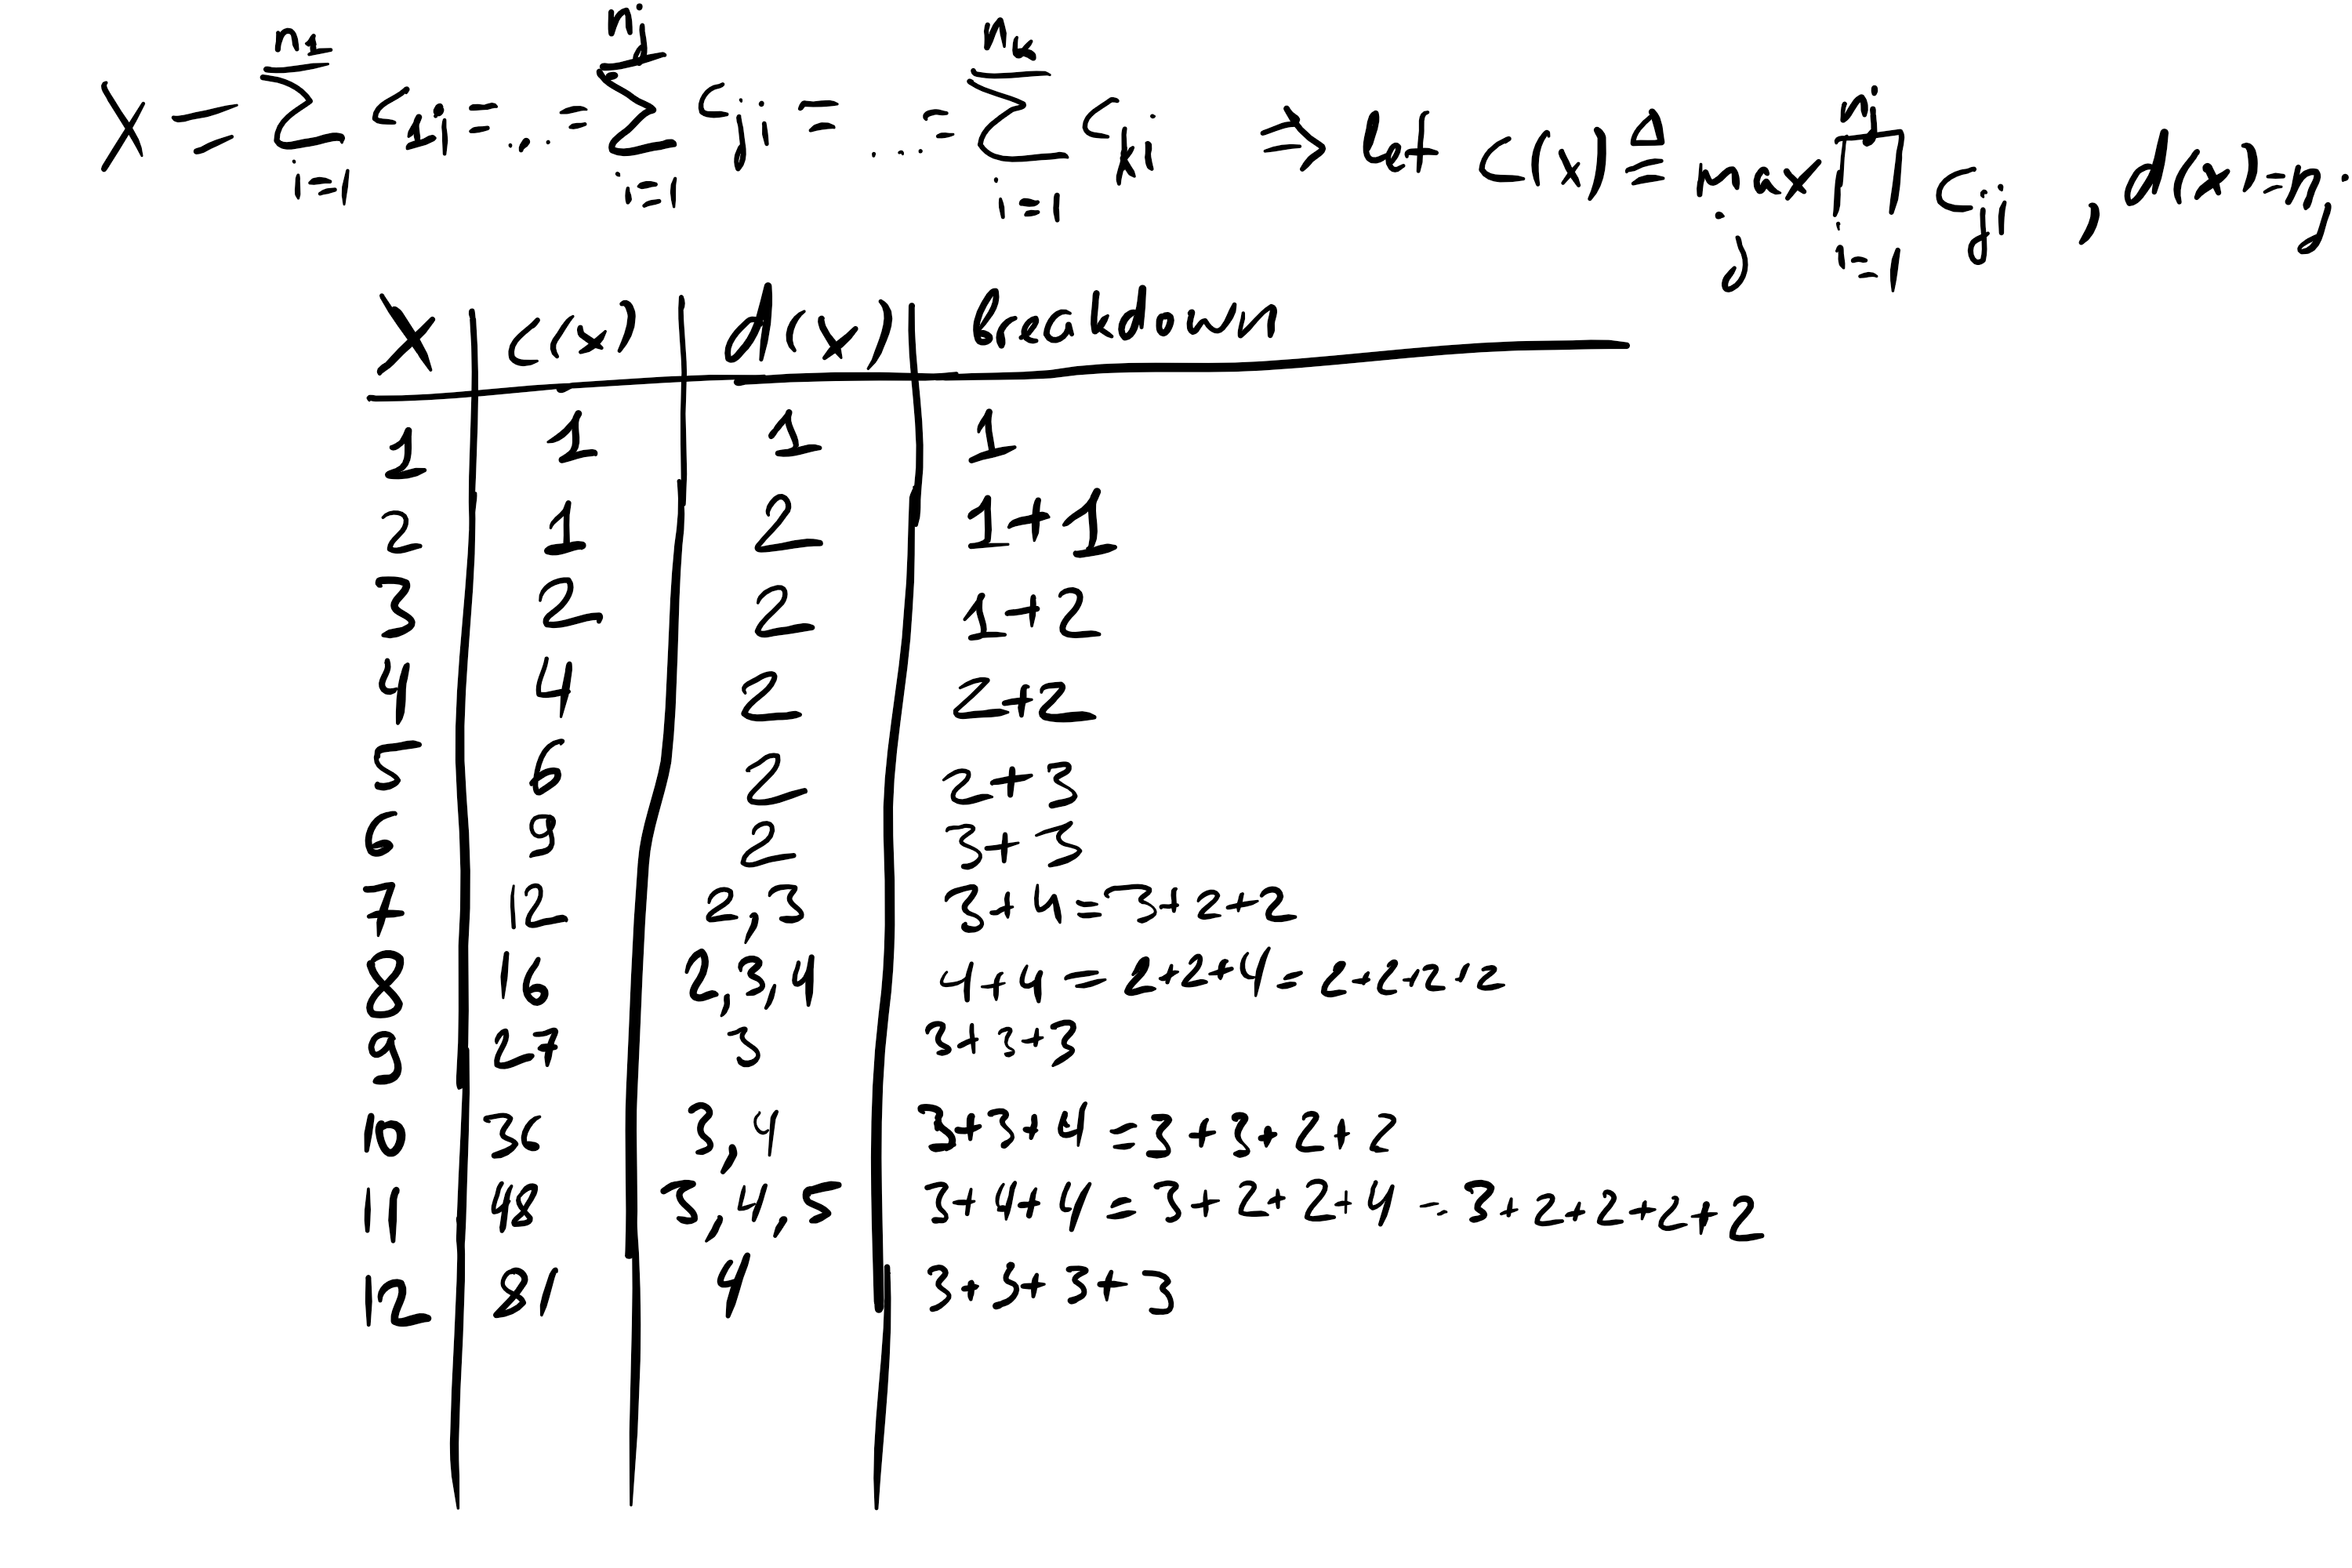 X = \sum_{i=1}^{n_1} c_{1i} = ... = \sum_{i=1}^{n_j} c_{ji} = ... = \sum_{i=1}^{n_k} c_{ki} ⇒ let c(x) ≜ max_j \prod_{i=1}^{n_j} c_{ji} , d(x) = n_j
X | c(x) | d(x) | Breakdown
1 | 1 | 1 | 1
2 | 1 | 2 | 1+1
3 | 2 | 2 | 1+2
4 | 4 | 2 | 2+2
5 | 6 | 2 | 2+3
6 | 9 | 2 | 3+3
7 | 12 | 2,3 | 3+4=3+2+2
8 | 16 | 2,3,4 | 4+4=2+2+4=2+2+2+2
9 | 27 | 3 | 3+3+3
10 | 36 | 3,4 | 3+3+4=3+3+2+2
11 | 48 | 3,4,5 | 3+4+4=3+2+2+4=3+2+2+2+2
12 | 81 | 4 | 3+3+3+3